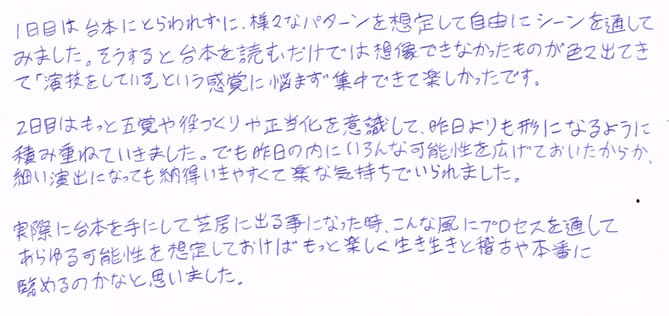 1日目は台本にとらわれずに、様々なパターンを想定して自由にシーンを通して
みました。そうすると台本を読むだけでは想像できなかったものが色々出てき
て「演技をしている」という感覚に悩まず集中できて楽しかったです。
2日目はもっと五覚や役づくりや正当化を意識して、昨日よりも形になるように
積み重ねていきました。でも昨日の内にいろんな可能性を広げておいたからか、
細い演出になっても納得いきやすくて楽な気持ちでいられました。
実際に台本を手にして芝居に出る事になった時、こんな風にプロセスを通して
あらゆる可能性を想定しておけばもっと楽しく生き生きと稽古や本番に
臨めるのかなと思いました。